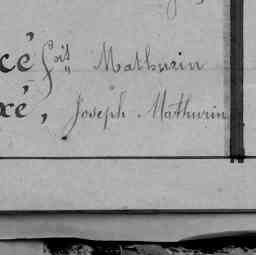 cé fils Mathurin
xé, Joseph Mathurin